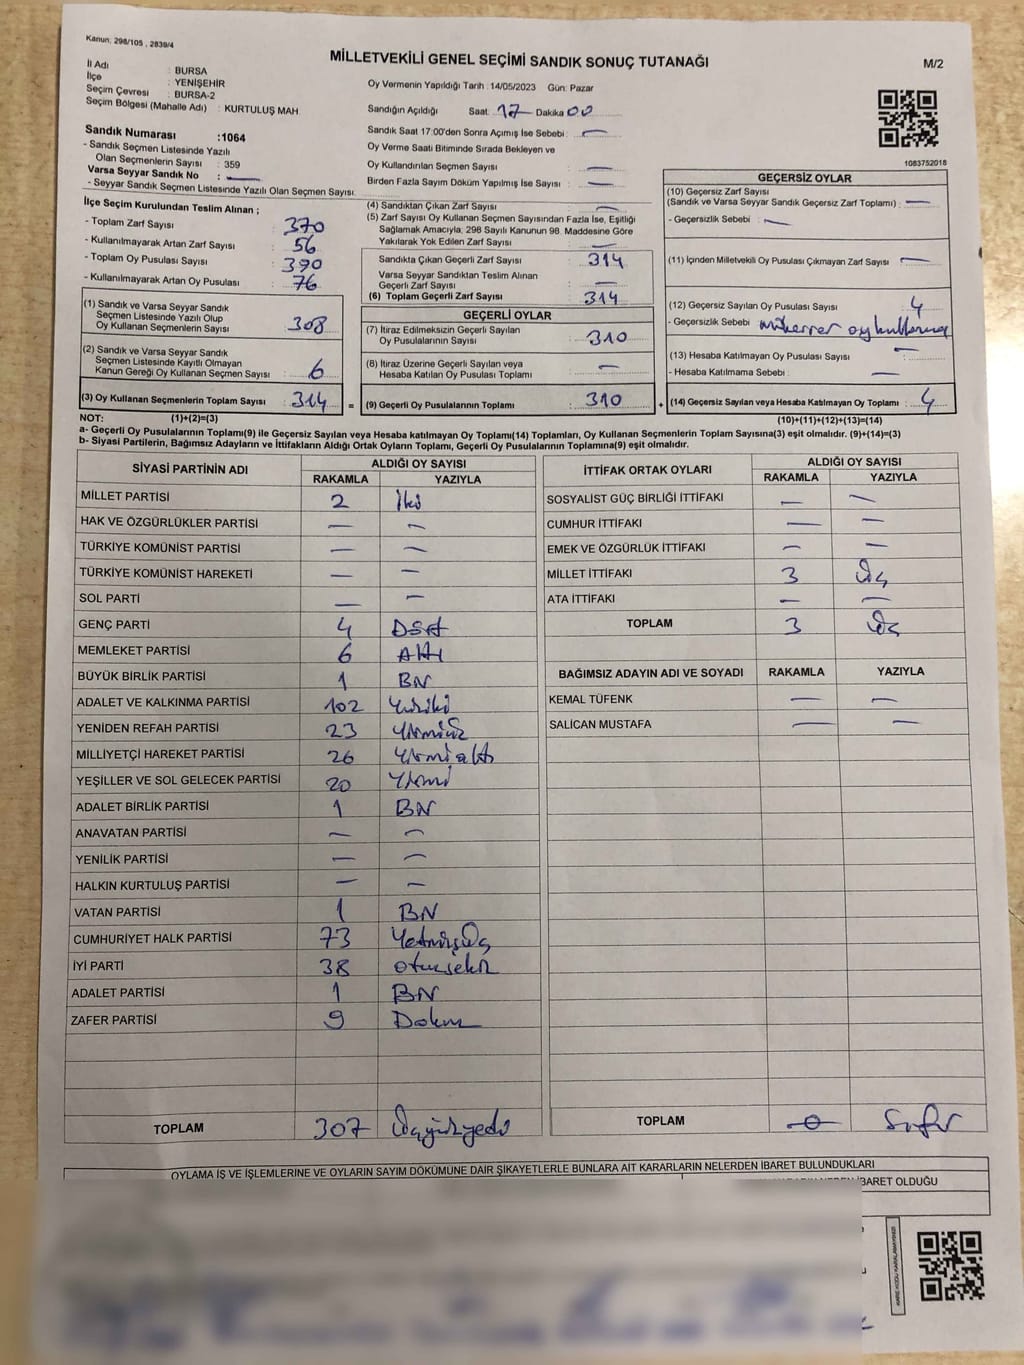 Kanun: 298/105 , 2839/4
MİLLETVEKİLİ GENEL SEÇİMİ SANDIK SONUÇ TUTANAĞI
M/2
İl Adı : BURSA
İlçe : YENİŞEHİR
Seçim Çevresi : BURSA-2
Seçim Bölgesi (Mahalle Adı) : KURTULUŞ MAH
Sandık Numarası :1064
- Sandık Seçmen Listesinde Yazılı
Olan Seçmenlerin Sayısı : 359
Varsa Seyyar Sandık No : —
- Seyyar Sandık Seçmen Listesinde Yazılı Olan Seçmen Sayısı:
Oy Vermenin Yapıldığı Tarih : 14/05/2023 Gün: Pazar
Sandığın Açıldığı Saat: 17 Dakika 00
Sandık Saat 17:00'den Sonra Açımış İse Sebebi : —
Oy Verme Saati Bitiminde Sırada Bekleyen ve
Oy Kullandırılan Seçmen Sayısı : —
Birden Fazla Sayım Döküm Yapılmış İse Sayısı : —
1083752018
İlçe Seçim Kurulundan Teslim Alınan ;
- Toplam Zarf Sayısı : 370
- Kullanılmayarak Artan Zarf Sayısı : 56
- Toplam Oy Pusulası Sayısı : 390
- Kullanılmayarak Artan Oy Pusulası : 76
(1) Sandık ve Varsa Seyyar Sandık
Seçmen Listesinde Yazılı Olup
Oy Kullanan Seçmenlerin Sayısı : 308
(2) Sandık ve Varsa Seyyar Sandık
Seçmen Listesinde Kayıtlı Olmayan
Kanun Gereği Oy Kullanan Seçmen Sayısı : 6
(3) Oy Kullanan Seçmenlerin Toplam Sayısı : 314
(4) Sandıktan Çıkan Zarf Sayısı : —
(5) Zarf Sayısı Oy Kullanan Seçmen Sayısından Fazla İse, Eşitliği
Sağlamak Amacıyla, 298 Sayılı Kanunun 98. Maddesine Göre
Yakılarak Yok Edilen Zarf Sayısı : —
Sandıkta Çıkan Geçerli Zarf Sayısı : 314
Varsa Seyyar Sandıktan Teslim Alınan
Geçerli Zarf Sayısı : —
(6) Toplam Geçerli Zarf Sayısı : 314
GEÇERLİ OYLAR
(7) İtiraz Edilmeksizin Geçerli Sayılan
Oy Pusulalarının Sayısı : 310
(8) İtiraz Üzerine Geçerli Sayılan veya
Hesaba Katılan Oy Pusulası Toplamı : —
= (9) Geçerli Oy Pusulalarının Toplamı : 310
GEÇERSİZ OYLAR
(10) Geçersiz Zarf Sayısı
(Sandık ve Varsa Seyyar Sandık Geçersiz Zarf Toplamı) : —
- Geçersizlik Sebebi : —
(11) İçinden Milletvekili Oy Pusulası Çıkmayan Zarf Sayısı : —
(12) Geçersiz Sayılan Oy Pusulası Sayısı : 4
- Geçersizlik Sebebi : mükerrer oy kullanma
(13) Hesaba Katılmayan Oy Pusulası Sayısı : —
- Hesaba Katılmama Sebebi : —
+ (14) Geçersiz Sayılan veya Hesaba Katılmayan Oy Toplamı : 4
NOT: (1)+(2)=(3) (10)+(11)+(12)+(13)=(14)
a- Geçerli Oy Pusulalarının Toplamı(9) ile Geçersiz Sayılan veya Hesaba katılmayan Oy Toplamı(14) Toplamları, Oy Kullanan Seçmenlerin Toplam Sayısına(3) eşit olmalıdır. (9)+(14)=(3)
b- Siyasi Partilerin, Bağımsız Adayların ve İttifakların Aldığı Ortak Oyların Toplamı, Geçerli Oy Pusulalarının Toplamına(9) eşit olmalıdır.
SİYASİ PARTİNİN ADI ALDIĞI OY SAYISI
RAKAMLA YAZIYLA
MİLLET PARTİSİ 2 İki
HAK VE ÖZGÜRLÜKLER PARTİSİ — —
TÜRKİYE KOMÜNİST PARTİSİ — —
TÜRKİYE KOMÜNİST HAREKETİ — —
SOL PARTİ — —
GENÇ PARTİ 4 Dört
MEMLEKET PARTİSİ 6 Altı
BÜYÜK BİRLİK PARTİSİ 1 Bir
ADALET VE KALKINMA PARTİSİ 102 Yüziki
YENİDEN REFAH PARTİSİ 23 Yirmiüç
MİLLİYETÇİ HAREKET PARTİSİ 26 Yirmialtı
YEŞİLLER VE SOL GELECEK PARTİSİ 20 Yirmi
ADALET BİRLİK PARTİSİ 1 Bir
ANAVATAN PARTİSİ — —
YENİLİK PARTİSİ — —
HALKIN KURTULUŞ PARTİSİ — —
VATAN PARTİSİ 1 Bir
CUMHURİYET HALK PARTİSİ 73 Yetmişüç
İYİ PARTİ 38 otuzsekiz
ADALET PARTİSİ 1 Bir
ZAFER PARTİSİ 9 Dokuz
TOPLAM 307 Üçyüzyedi
İTTİFAK ORTAK OYLARI ALDIĞI OY SAYISI
RAKAMLA YAZIYLA
SOSYALİST GÜÇ BİRLİĞİ İTTİFAKI — —
CUMHUR İTTİFAKI — —
EMEK VE ÖZGÜRLÜK İTTİFAKI — —
MİLLET İTTİFAKI 3 Üç
ATA İTTİFAKI — —
TOPLAM 3 Üç
BAĞIMSIZ ADAYIN ADI VE SOYADI RAKAMLA YAZIYLA
KEMAL TÜFENK — —
SALİCAN MUSTAFA — —
TOPLAM 0 Sıfır
OYLAMA İŞ VE İŞLEMLERİNE VE OYLARIN SAYIM DÖKÜMÜNE DAİR ŞİKAYETLERLE BUNLARA AİT KARARLARIN NELERDEN İBARET BULUNDUKLARI
İBARET OLDUĞU